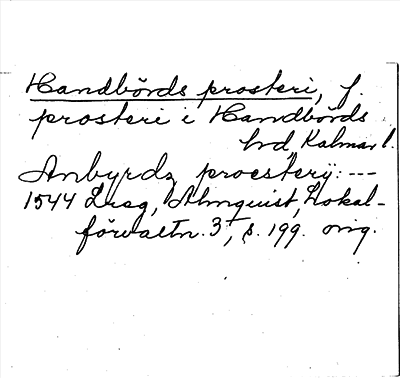 Handbörds prosteri, f.
prosteri i Handbörds
hd, Kalmar l.
Anbyrdz proestery: ---
1544 Lrag, Almquist, Lokal-
förvaltn. 3, s. 199. orig.